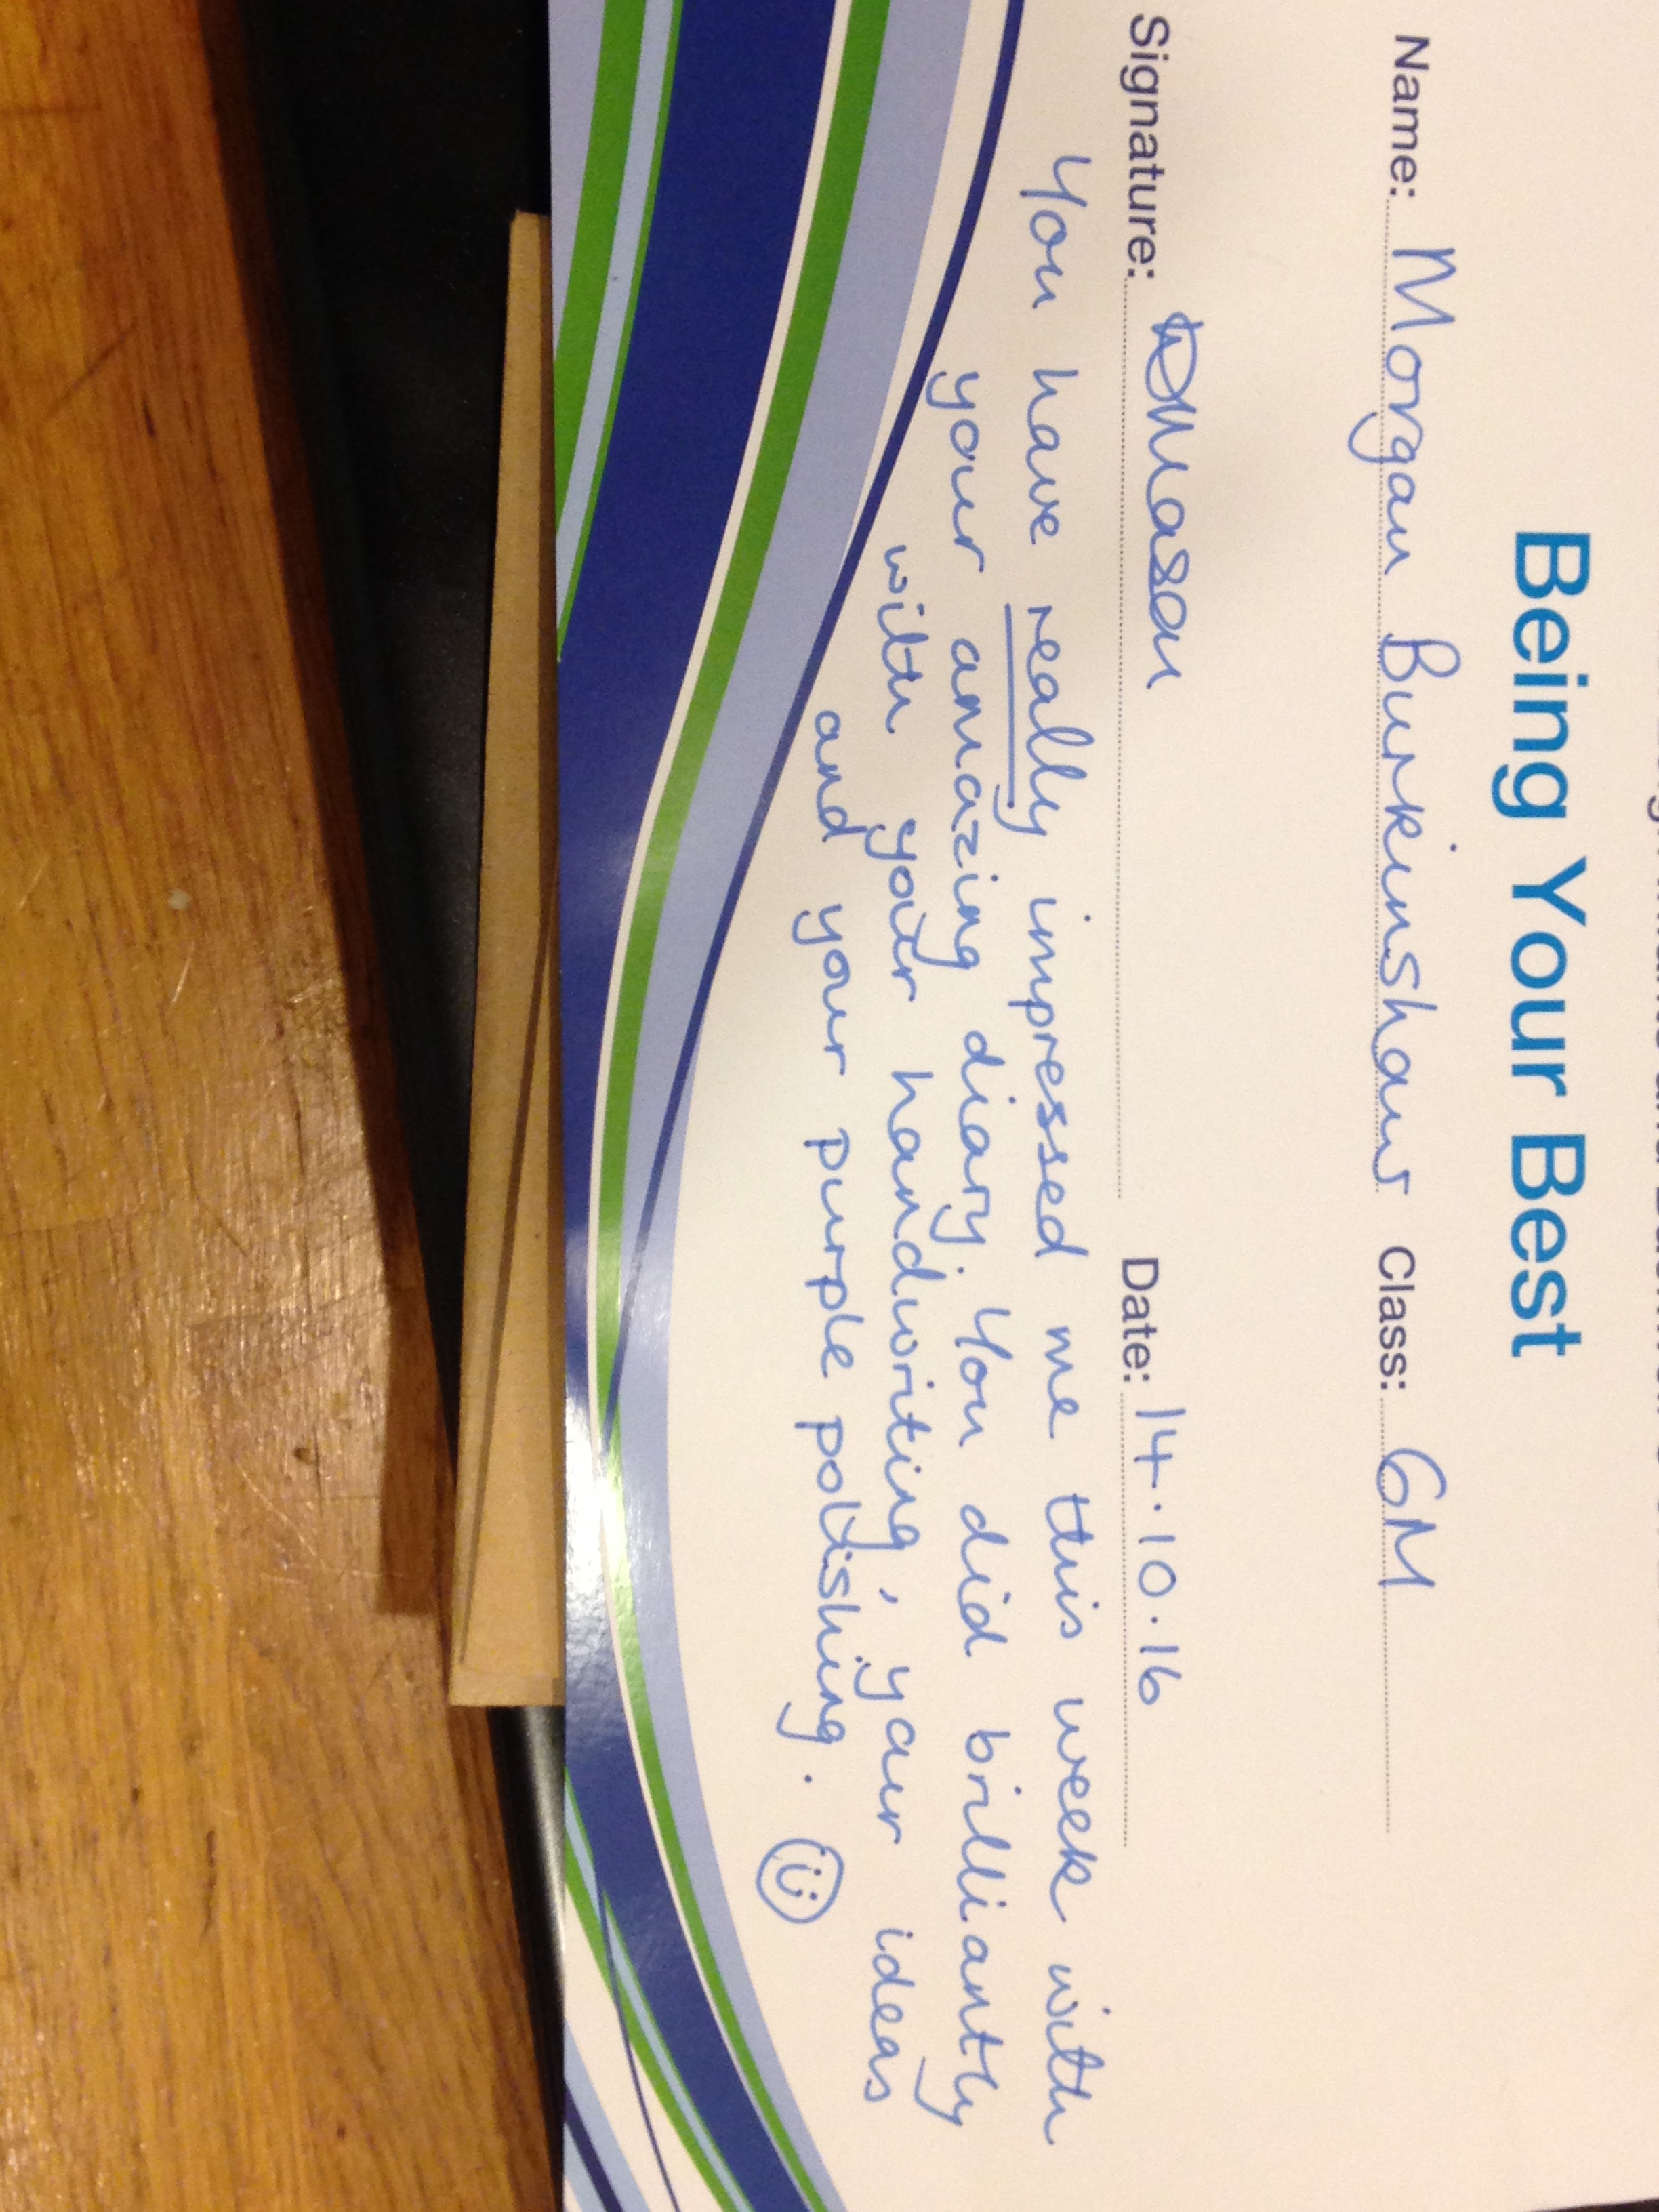 Being Your Best
Name: Morgan Burkinshaw Class: 6M
Signature: Date: 14.10.16
You have really impressed me this week with
your amazing diary. You did brilliantly
with your handwriting, your ideas
and your purple polishing.